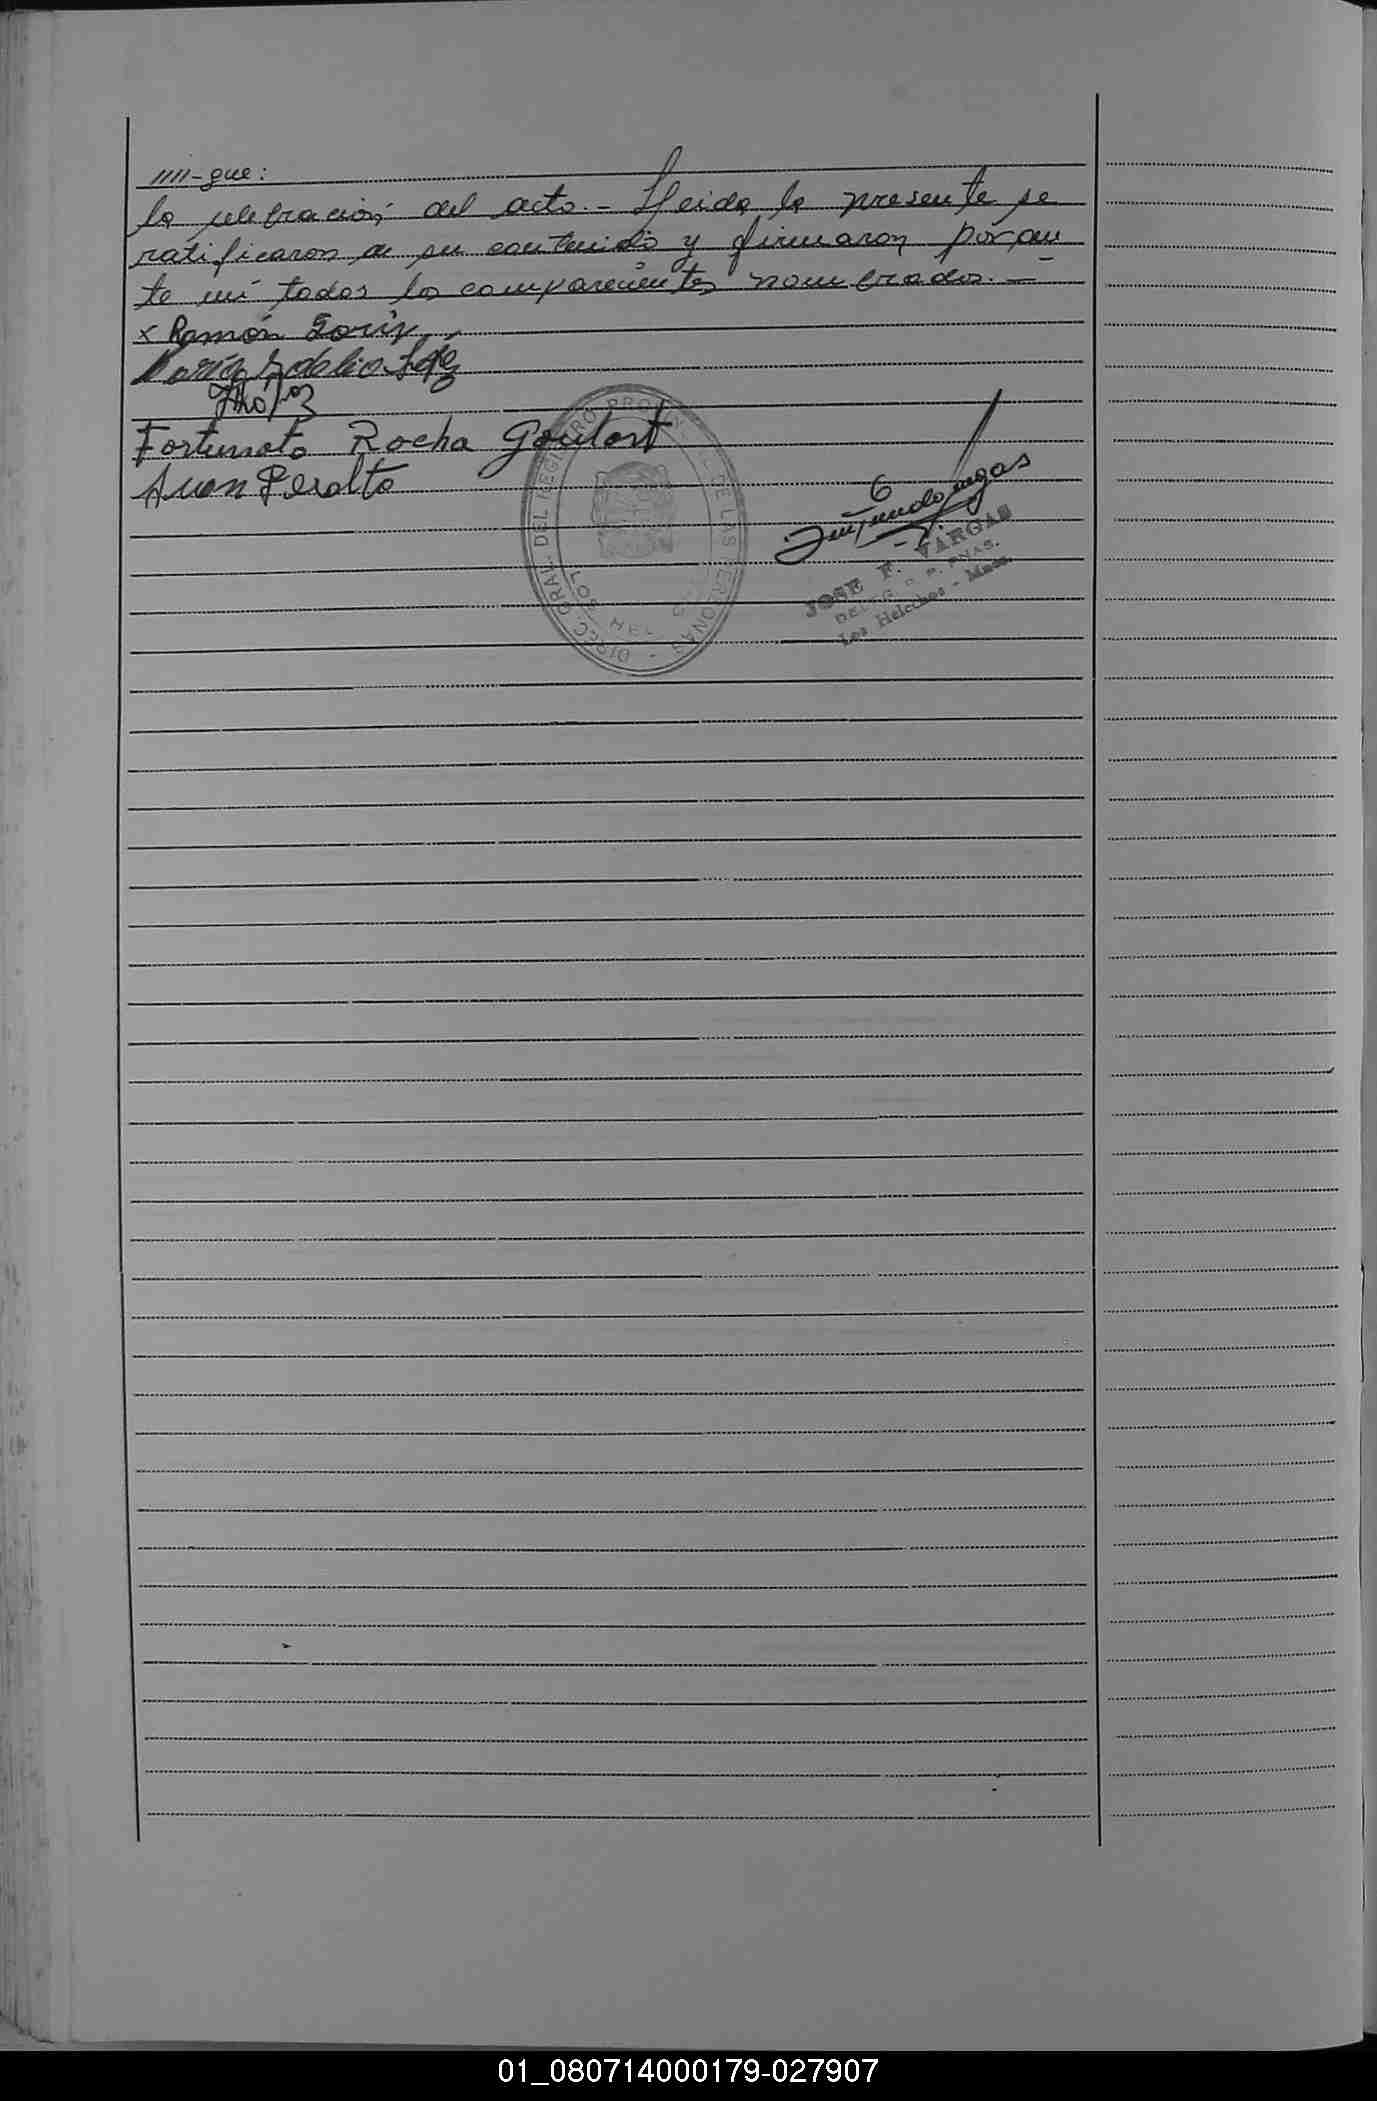 ////-gue:
la celebración del acto.- Lleida la presente se
ratificaron de su contenido y firmaron por an
te mí todos los comparecientes nombrados.—
x Ramón
María
Fortunato Rocha Goulart
Juan Peralta
DIREC. GRAL. DEL REGISTRO PROV. DE LAS PERSONAS
LOS HEL
JOSE F. VARGAS
DELEG. R. P. PNAS.
Los Helechos - Mnes.
01_080714000179-027907